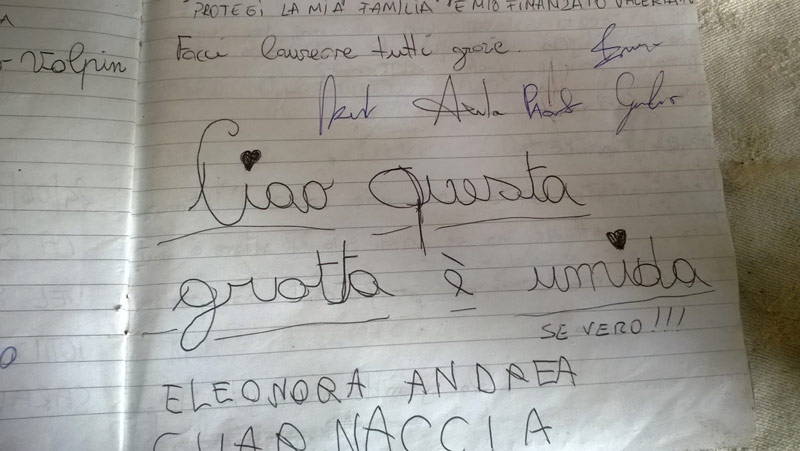 PROTEGI LA MIA FAMILIA E MIO FINANZATO VALERIA
Facci laureare tutti grazie.
Volpin
Ciao questa
grotta è umida
SE VERO!!!
ELEONORA ANDREA
GUARNACCIA